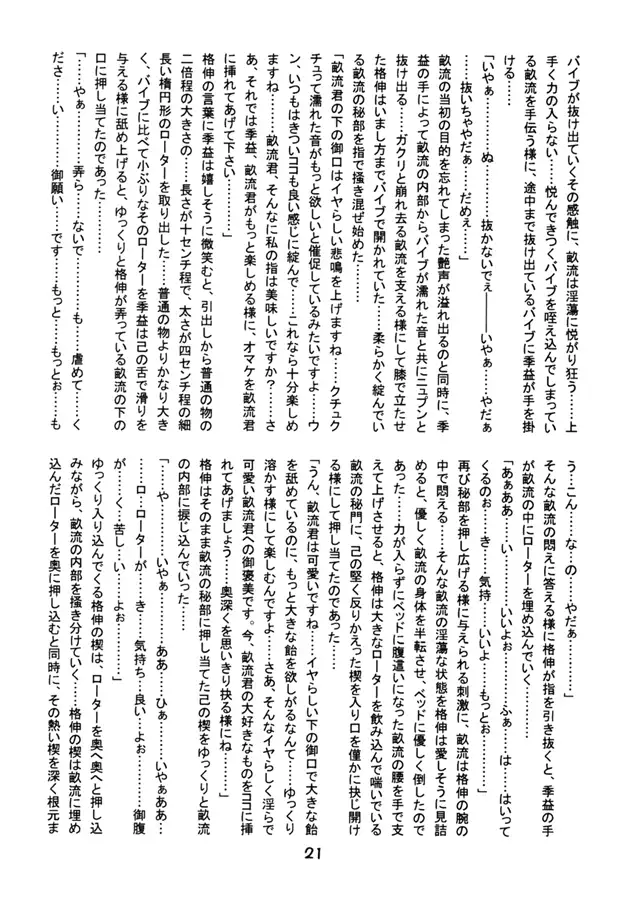 バイブが抜け出ていくその感触に、畝流は淫蕩に悦がり狂う……上
手く力の入らない……悦んできつく、バイブを咥え込んでしまってい
る畝流を手伝う様に、途中まで抜け出ているバイブに季益が手を掛
ける……
「いやぁ…………ぬ…………抜かないでぇ――……いやぁ……やだぁ
……抜いちゃやだぁ……だめぇ……」
畝流の当初の目的を忘れてしまった艶声が溢れ出るのと同時に、季
益の手によって畝流の内部からバイブが濡れた音と共にニュプンと
抜け出る……ガクリと崩れ去る畝流を支える様にして膝で立たせ
た格伸はいまし方までバイブで開かれていた……柔らかく綻んでい
る畝流の秘部を指で掻き混ぜ始めた…………
「畝流君の下の御口はイヤらしい悲鳴を上げますね……クチュク
チュって濡れた音がもっと欲しいと催促しているみたいですよ……ウ
ン、いつもはきついココも良い感じに綻んで……これなら十分楽しめ
ますね………畝流君、そんなに私の指は美味しいですか？……さ
あ、それでは季益、畝流君がもっと楽しめる様に、オマケを畝流君
に挿れてあげて下さい…………」
格伸の言葉に季益は嬉しそうに微笑むと、引出しから普通の物の
二倍程の大きさの……長さが十センチ程で、太さが四センチ程の細
長い楕円形のローターを取り出した……普通の物よりかなり大き
く、バイブに比べて小ぶりなそのローターを季益は己の舌で滑りを
与える様に舐め上げると、ゆっくりと格伸が弄っている畝流の下の
口に押し当てたのであった…………
「……やぁ…………弄ら……ないで……も……虐めて……く
ださ……い…………御願い……です……もっと……もっとぉ……も
う……こん……な……の……やだぁ…………」
そんな畝流の悶えに答える様に格伸が指を引き抜くと、季益の手
が畝流の中にローターを埋め込んでいく…………
「あぁああ……い……いいよぉ…………ふぁ……は……はいって
くるのぉ……き……気持……いいよ……もっとぉ…………」
再び秘部を押し広げる様に与えられる刺激に、畝流は格伸の腕の
中で悶える……そんな畝流の淫蕩な状態を格伸は愛しそうに見詰
めると、優しく畝流の身体を半転させ、ベッドに優しく倒したので
あった……力が入らずにベッドに腹這いになった畝流の腰を手で支
えて上げさせると、格伸は大きなローターを飲み込んで喘いでいる
畝流の秘門に、己の堅く反りかえった楔を入り口を僅かに抉じ開け
る様にして押し当てたのであった……
「うん、畝流君は可愛いですね……イヤらしい下の御口で大きな飴
を舐めているのに、もっと大きな飴を欲しがるなんて……ゆっくり
溶かす様にして楽しむんですよ……さあ、そんなイヤらしく淫らで
可愛い畝流君への御褒美です。今、畝流君の大好きなものをココに挿
れてあげましょう……奥深くを思いきり抉る様にね…………」
格伸はそのまま畝流の秘部に押し当てた己の楔をゆっくりと畝流
の内部に捩じ込んでいった……
「……や……いやぁ……ああ……ひぁ…………いやぁああ…
……ロ…ローターが……き……気持ち…良い…よぉ…………御腹
が……く…苦し…い……よぉ…………」
ゆっくり入り込んでくる格伸の楔は、ローターを奥へ奥へと押し込
みながら、畝流の内部を掻き分けていく……格伸の楔は畝流に埋め
込んだローターを奥に押し込むと同時に、その熱い楔を深く根元ま
21